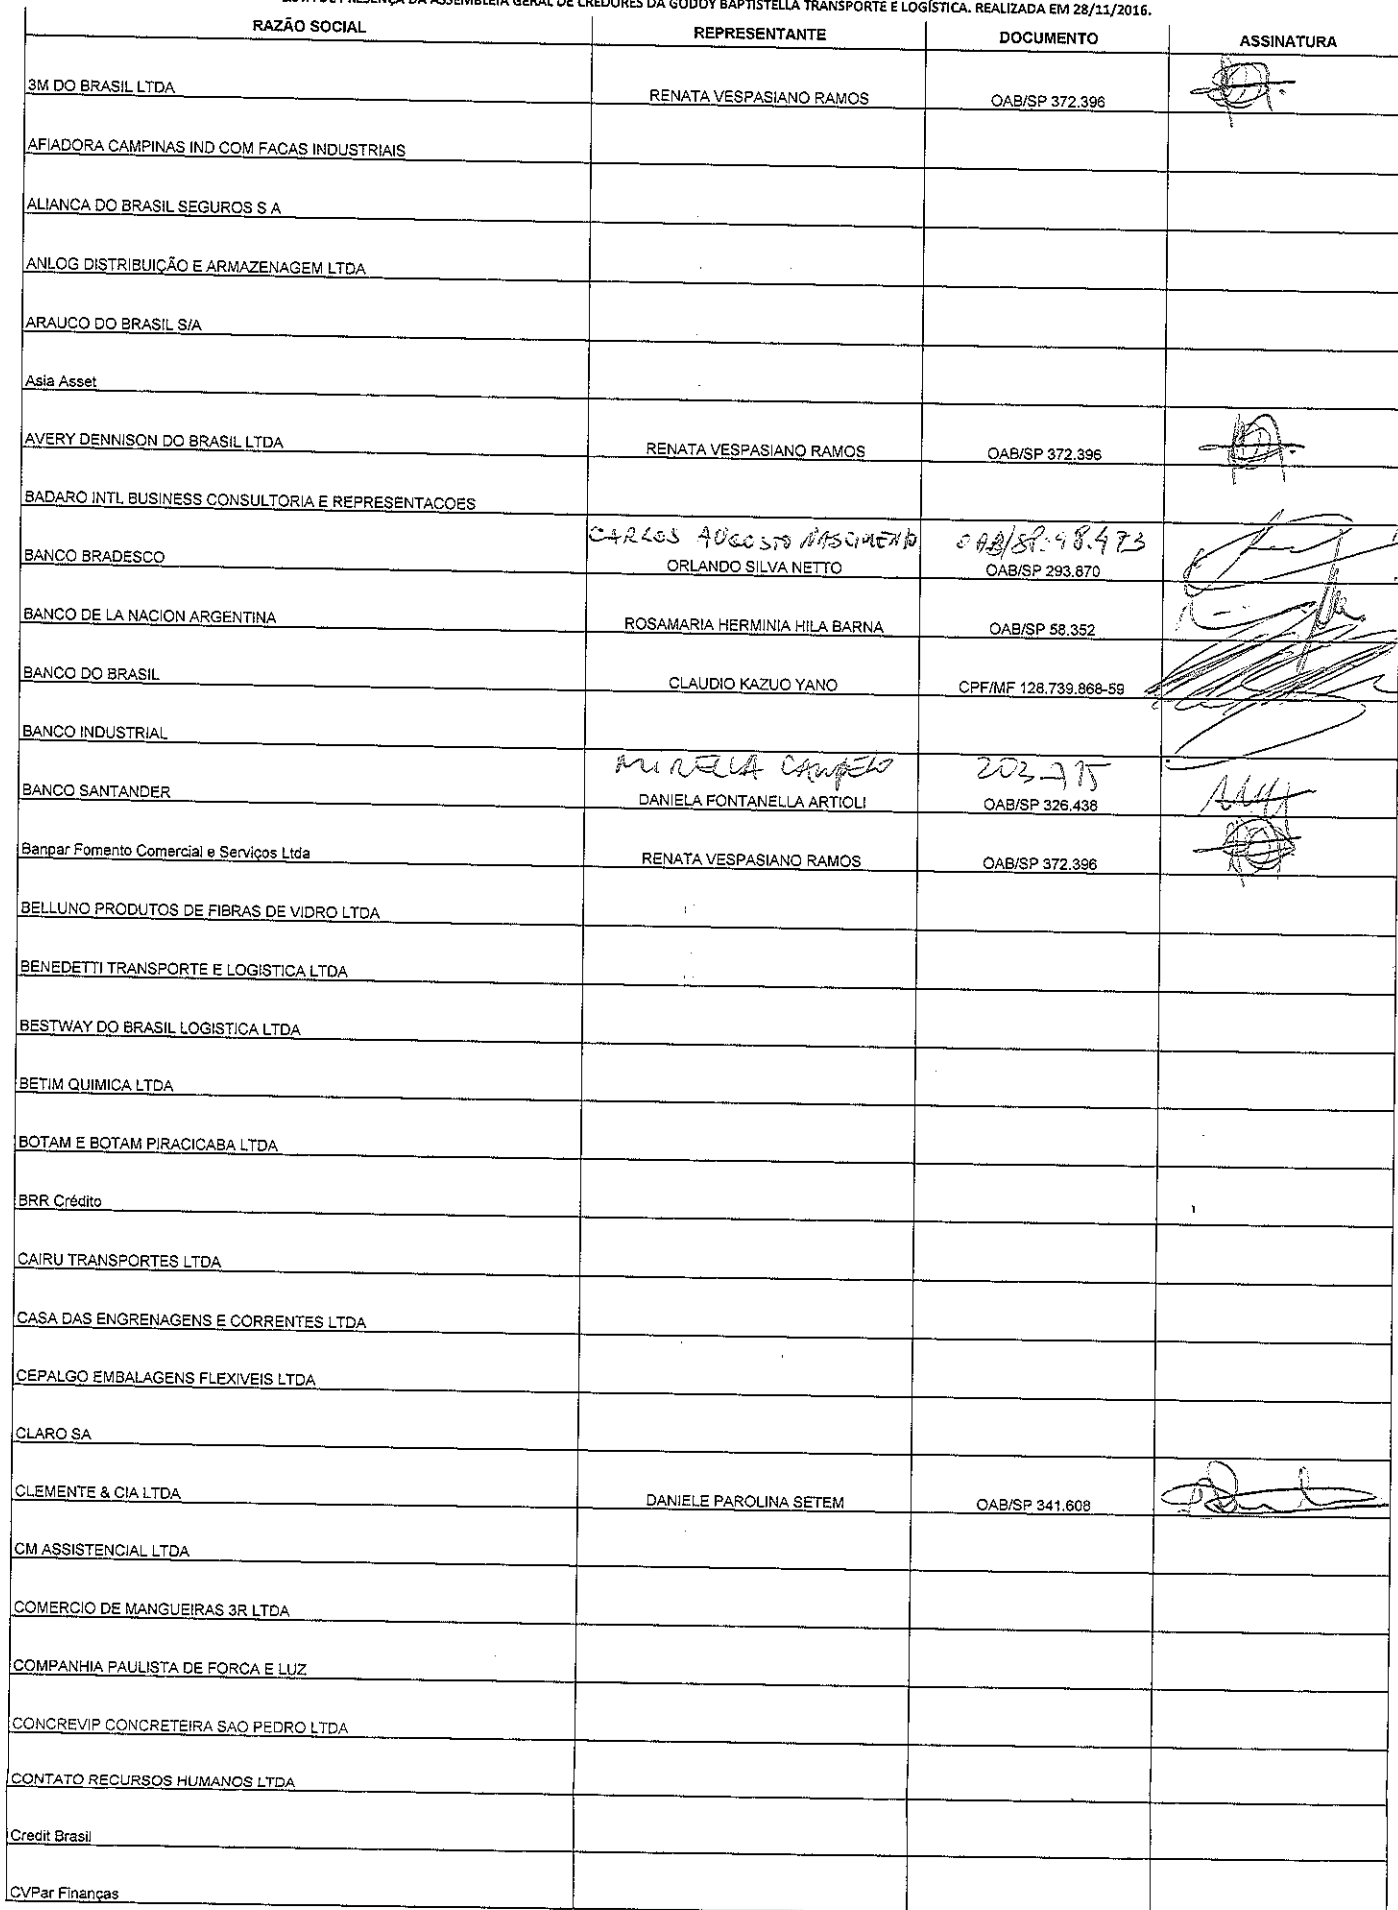 LISTA DE PRESENÇA DA ASSEMBLEIA GERAL DE CREDORES DA GODOY BAPTISTELLA TRANSPORTE E LOGÍSTICA. REALIZADA EM 28/11/2016.
RAZÃO SOCIAL REPRESENTANTE DOCUMENTO ASSINATURA
3M DO BRASIL LTDA RENATA VESPASIANO RAMOS OAB/SP 372.396
AFIADORA CAMPINAS IND COM FACAS INDUSTRIAIS
ALIANCA DO BRASIL SEGUROS S A
ANLOG DISTRIBUIÇÃO E ARMAZENAGEM LTDA
ARAUCO DO BRASIL S/A
Asia Asset
AVERY DENNISON DO BRASIL LTDA RENATA VESPASIANO RAMOS OAB/SP 372.396
BADARO INTL BUSINESS CONSULTORIA E REPRESENTACOES
CARLOS AUGUSTO NASCIMENTO OAB/SP. 98.473
BANCO BRADESCO ORLANDO SILVA NETTO OAB/SP 293.870
BANCO DE LA NACION ARGENTINA ROSAMARIA HERMINIA HILA BARNA OAB/SP 58.352
BANCO DO BRASIL CLAUDIO KAZUO YANO CPF/MF 128.739.868-59
BANCO INDUSTRIAL
MIRELLA CAMPELO
BANCO SANTANDER DANIELA FONTANELLA ARTIOLI OAB/SP 326.438
Banpar Fomento Comercial e Serviços Ltda RENATA VESPASIANO RAMOS OAB/SP 372.396
BELLUNO PRODUTOS DE FIBRAS DE VIDRO LTDA
BENEDETTI TRANSPORTE E LOGISTICA LTDA
BESTWAY DO BRASIL LOGISTICA LTDA
BETIM QUIMICA LTDA
BOTAM E BOTAM PIRACICABA LTDA
BRR Crédito
CAIRU TRANSPORTES LTDA
CASA DAS ENGRENAGENS E CORRENTES LTDA
CEPALGO EMBALAGENS FLEXIVEIS LTDA
CLARO SA
CLEMENTE & CIA LTDA DANIELE PAROLINA SETEM OAB/SP 341.608
CM ASSISTENCIAL LTDA
COMERCIO DE MANGUEIRAS 3R LTDA
COMPANHIA PAULISTA DE FORCA E LUZ
CONCREVIP CONCRETEIRA SAO PEDRO LTDA
CONTATO RECURSOS HUMANOS LTDA
Credit Brasil
CVPar Finanças